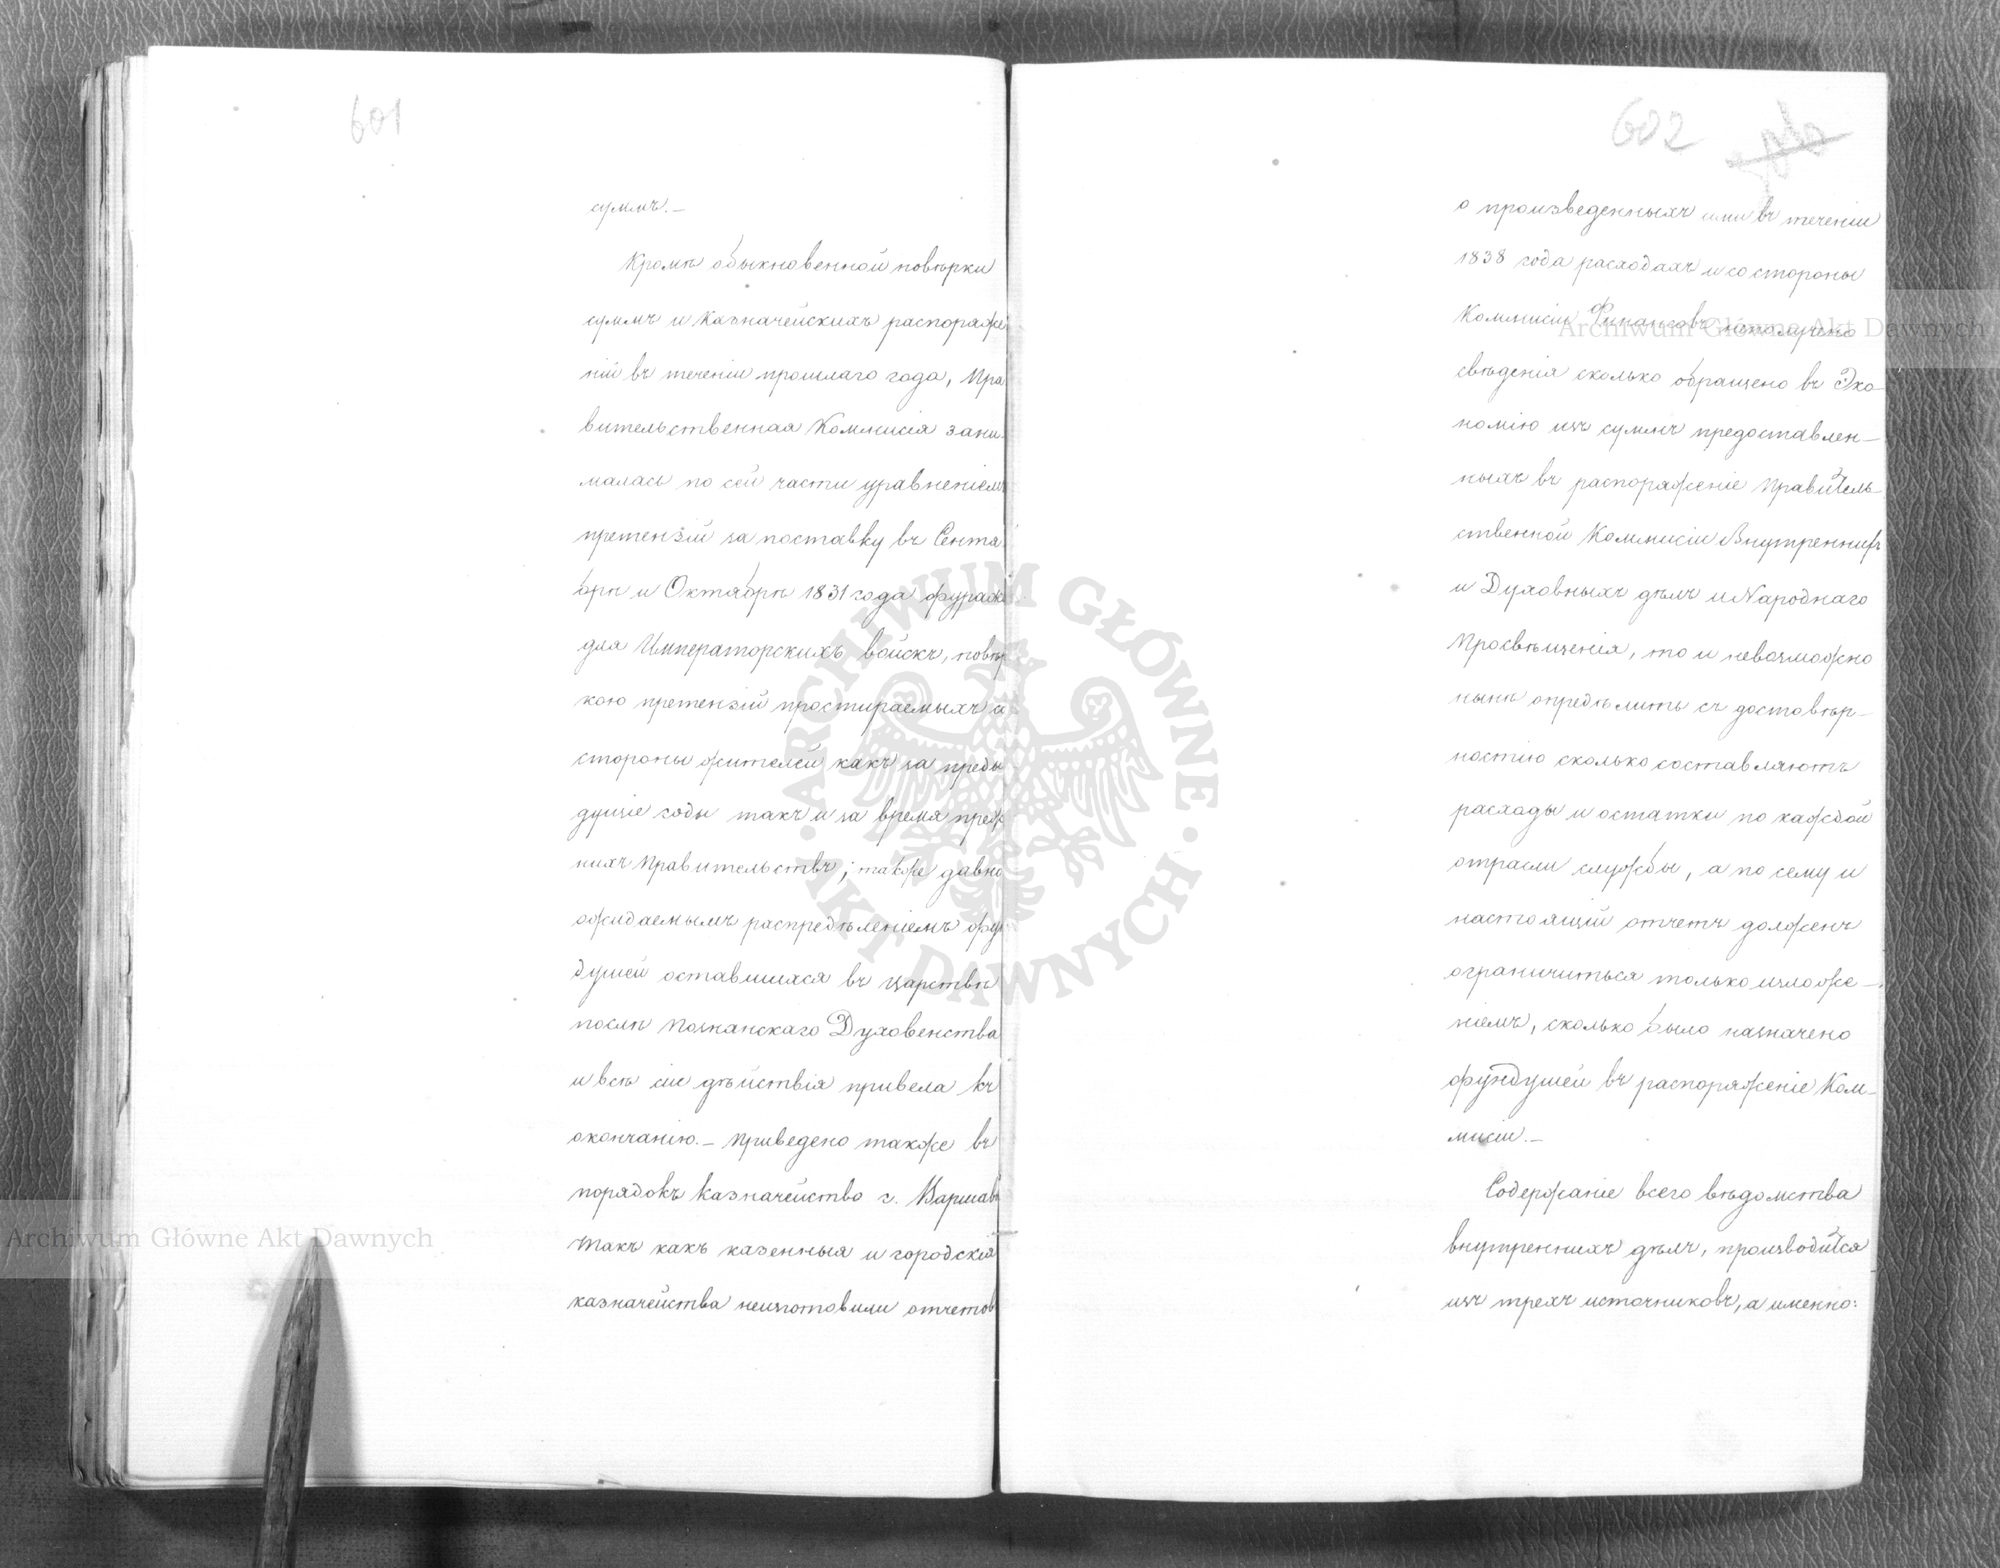 601
суммъ. –
Кромѣ обыкновенной повѣрки
суммъ и Казначейскихъ распоряже
ній въ теченіи прошлаго года, Пра
вительственная Коммисія зани-
малась по сей части уравненіемъ
претензій за поставку въ Сентя-
брѣ и Октябрѣ 1831 года фуража
для Императорскихъ войскъ, повѣр
кою претензій простираемыхъ со
стороны жителей какъ за преды
дущіе годы такъ и за время преж
нихъ Правительствъ; также давно
ожидаемымъ распредѣленіемъ фун
душей оставшихся въ Царствѣ
послѣ Познанскаго Духовенства
и всѣ сіе дѣйствія привела къ
окончанію. – Приведено также въ
порядокъ Казначейство г. Варшавы
Такъ какъ казенныя и городскія
казначейства неизготовили отчетовъ
602
о произведенныхъ ими въ теченіи
1838 года расходахъ и со стороны
Коммисіи Финансовъ неполучено
свѣденія сколько обращено въ Эко-
номію изъ суммъ предоставлен-
ныхъ въ распоряженіе Правитель-
ственной Коммисіи Внутреннихъ
и Духовныхъ дѣлъ и Народнаго
Просвѣщенія, то и невозможно
нынѣ опредѣлить съ достовѣр-
ностію сколько составляютъ
расходы и остатки по каждой
отрасли службы, а по сему и
настоящій отчетъ долженъ
ограничиться только изложе-
ніемъ, сколько было назначено
фундушей въ распоряженіе Ком-
мисіи. –
Содержаніе всего вѣдомства
внутреннихъ дѣлъ, производится
изъ трехъ источниковъ, а именно:
Archiwum Główne Akt Dawnych
ARCHIWUM GŁÓWNE
AKT DAWNYCH
Archiwum Główne Akt Dawnych